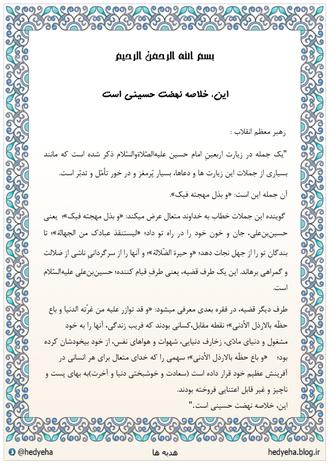 بسم الله الرحمن الرحیم
این، خلاصه نهضت حسینی است
رهبر معظم انقلاب :
"یک جمله در زیارت اربعینِ امام حسین علیه‌الصّلاةوالسّلام ذکر شده است که مانند
بسیاری از جملات این زیارت ها و دعاها، بسیار پُرمغز و در خور تأمّل و تدبّر است.
آن جمله این است: «و بذل مهجته فیک».
گوینده این جملات خطاب به خداوند متعال عرض میکند: «و بذل مهجته فیک»؛ یعنی
حسین‌بن‌علی، جان و خون خود را در راه تو داد؛ «لیستنقذ عبادک من الجهالة»؛ تا
بندگان تو را از جهل نجات دهد؛ «و حیرة الضّلالة»؛ و آنها را از سرگردانی ناشی از ضلالت
و گمراهی برهاند. این یک طرف قضیه، یعنی طرفِ قیام کننده؛ حسین‌بن‌علی علیه‌السّلام
است.
طرف دیگر قضیه، در فقره بعدی معرفی میشود: «و قد توازر علیه من غرّته الدنیا و باع
حظّه بالارذل الأدنی»؛ نقطه مقابل،کسانی بودند که فریب زندگی، آنها را به خود
مشغول و دنیای مادّی، زخارف دنیایی، شهوات و هواهای نفس، از خود بیخودشان کرده
بود؛ «و باع حظّه بالارذل الأدنی»؛ سهمی را که خدای متعال برای هر انسانی در
آفرینش عظیم خود قرار داده است (سعادت و خوشبختی دنیا و آخرت)به بهای پست و
ناچیز و غیر قابل اعتنایی فروخته بودند.
این، خلاصه نهضت حسینی است."
@hedyeha هدیه ها hedyeha.blog.ir